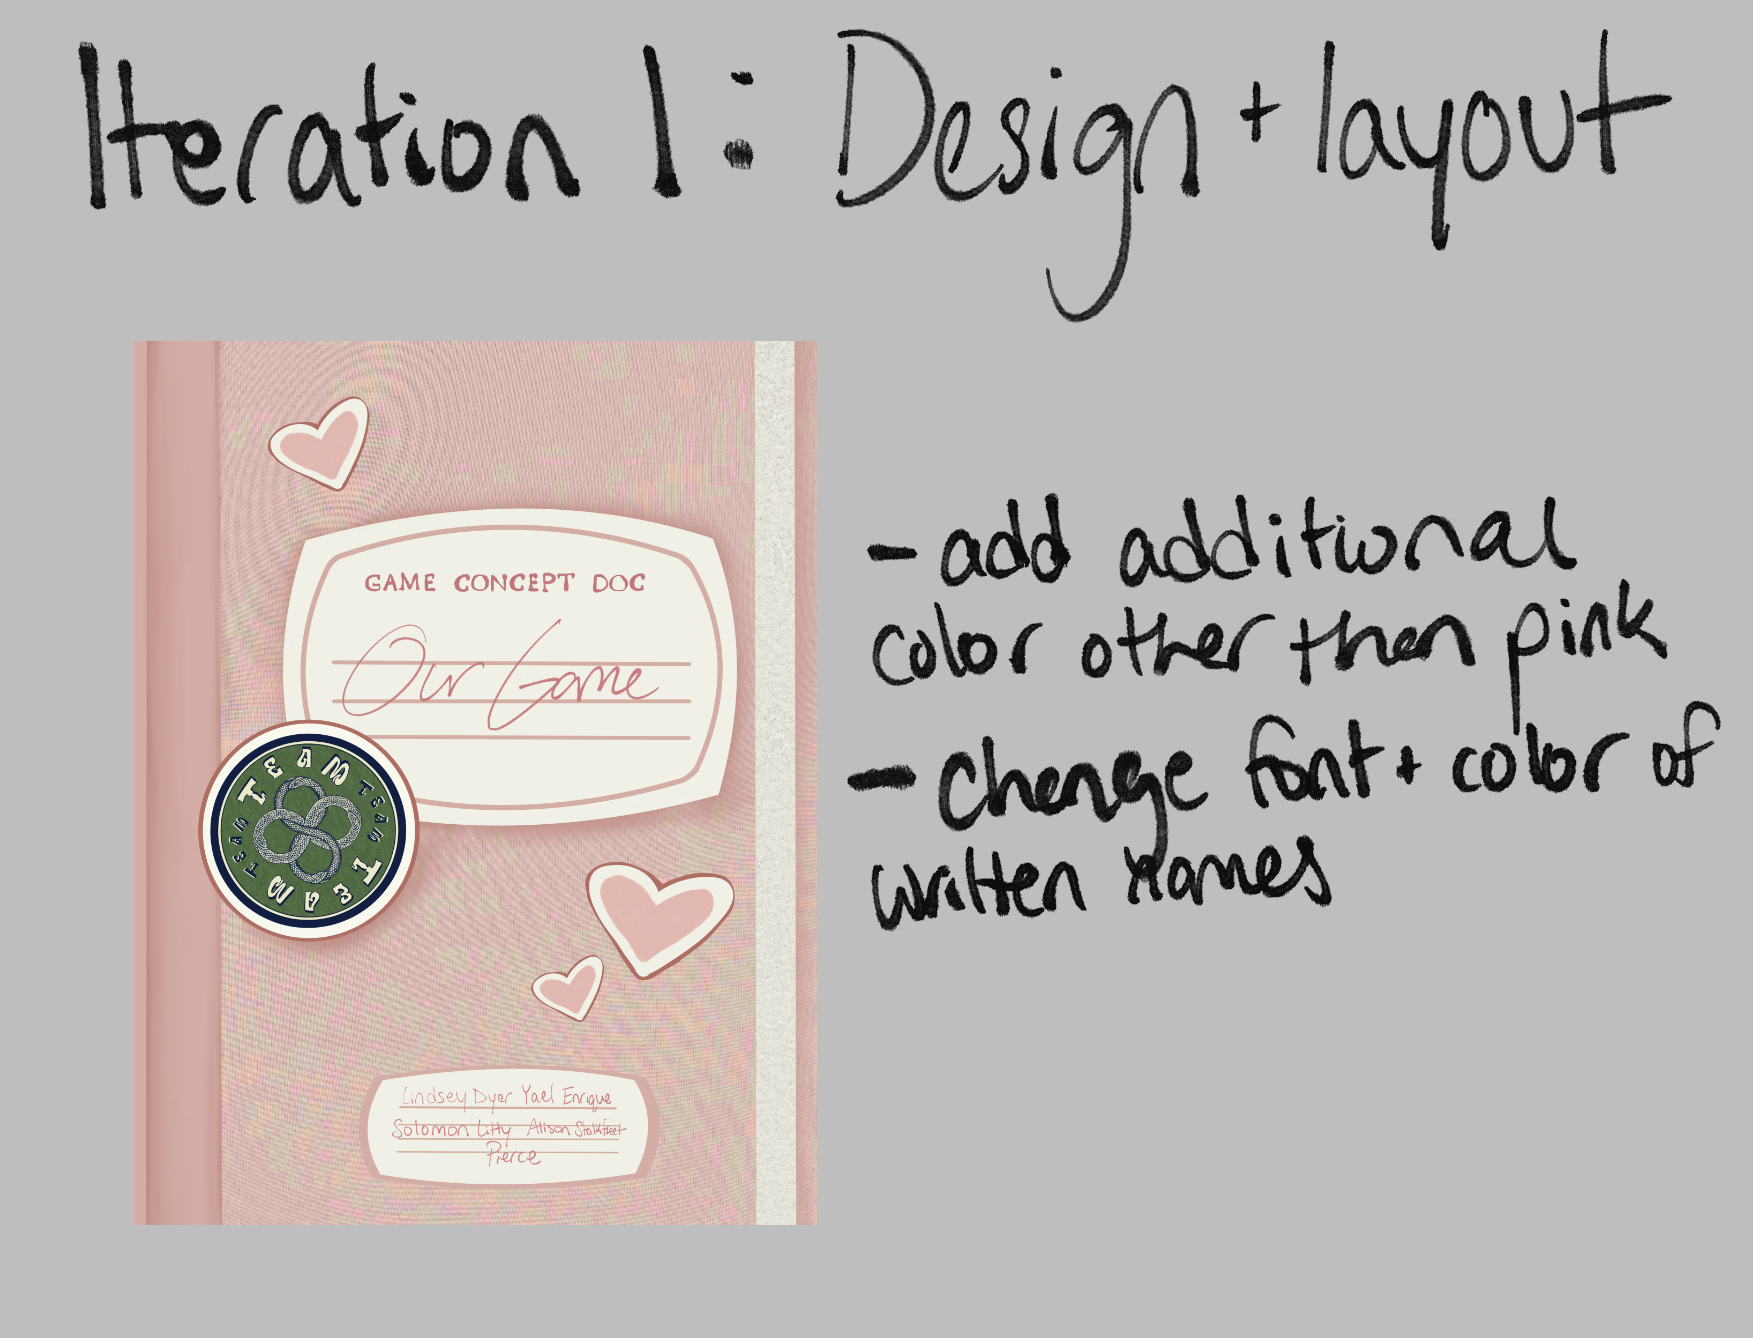 Iteration 1: Design + layout
GAME CONCEPT DOC
Our Game
TEAM TEAM TEAM TEAM
Lindsey Dyer Yael Enrique
Solomon Litty Alison Stalkfleet
Pierce
- add additional
color other then pink
- change font + color of
written names